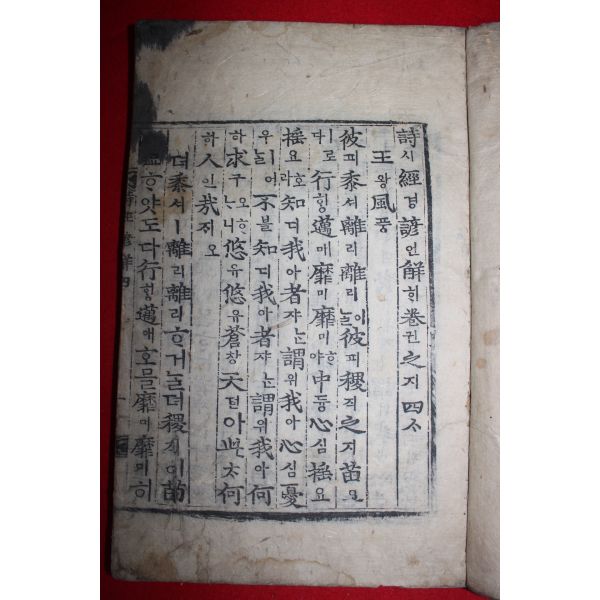 詩시經경諺언解ᄒᆡ卷권之지四ᄉᆞ
王왕風풍
彼피黍셔離리離리어ᄂᆞᆯ彼피稷직之지苗묘ㅣ
로다行ᄒᆡᆼ邁매靡미靡미ᄒᆞ야中듕心심搖요
搖요호라知디我아者쟈ᄂᆞᆫ謂위我아心심憂
우ㅣ어ᄂᆞᆯ不블知디我아者쟈ᄂᆞᆫ謂위我아何
하求구오ᄒᆞᄂᆞ니悠유悠유蒼창天텬아此ᄎᆞ何
하人인哉ᄌᆡ오
뎌黍셔ㅣ離리離리ᄒᆞ거ᄂᆞᆯ뎌稷직이苗
ᄒᆞ얏도다行ᄒᆡᆼ邁매호믈靡미靡미히